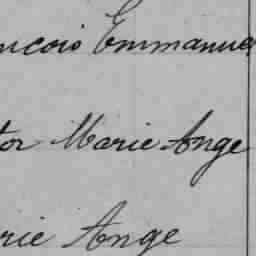 ncois Emmanue
tor Marie Ange
rie Ange